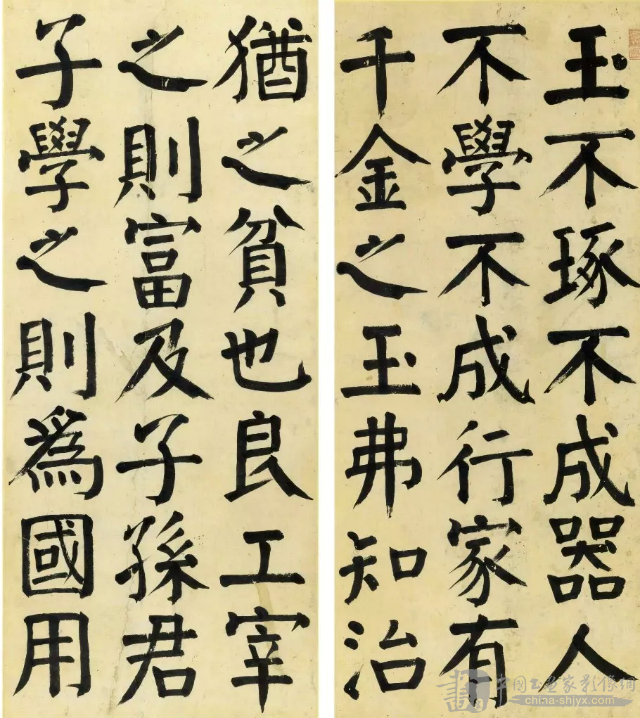 玉不琢不成器人
不學不成行家有
千金之玉弗知治
猶之貧也良工宰
之則富及子孫君
子學之則為國用
china-shjyx.com